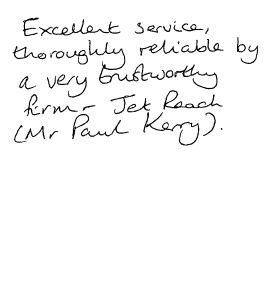 Excellent service,
thoroughly reliable by
a very trustworthy
firm - Jet Reach
(Mr Paul Kerry).